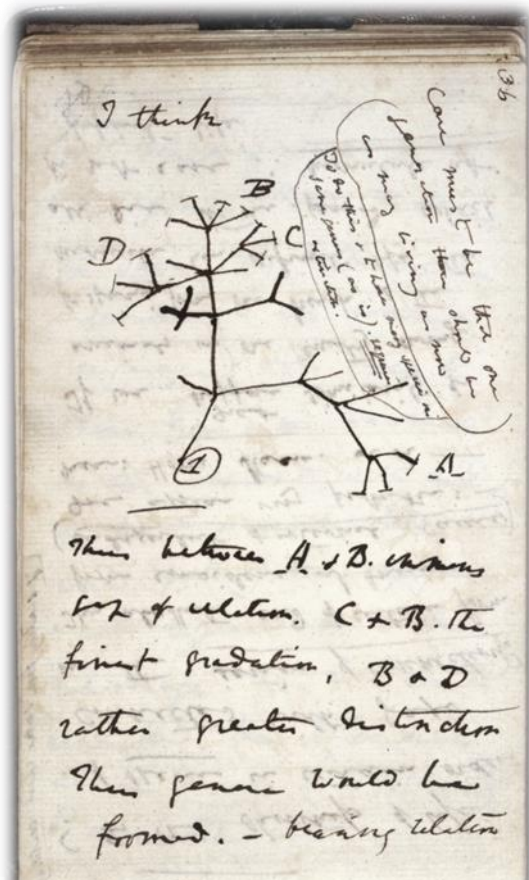 36
I think
Case must be that one
generation then should be
as many living as now
To do this & to have many species in
same genus (as is) requires
extinction.
B
C
D
A
1
Thus between A & B. immens
gap of relation. C & B. the
finest gradation, B & D
rather greater distinction
Thus genera would be
formed. – bearing relation